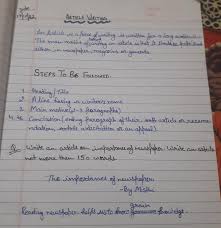 Article Writing
An Article is a form of writing is written for a large audience
The main motive of writing an article is that it should be published
either in newspaper, magazine or journals.
STEPS TO BE FOLLOWED
1. Heading / Title
2. A line having in writer's name
3. Main motive (2-3 paragraphs)
4. Conclusion (ending paragraph of their
Q. Write an article on importance of newspaper. Write an article
not more than 150 words
The importance of newspaper
- By
Reading newspaper helps us to knowledge.